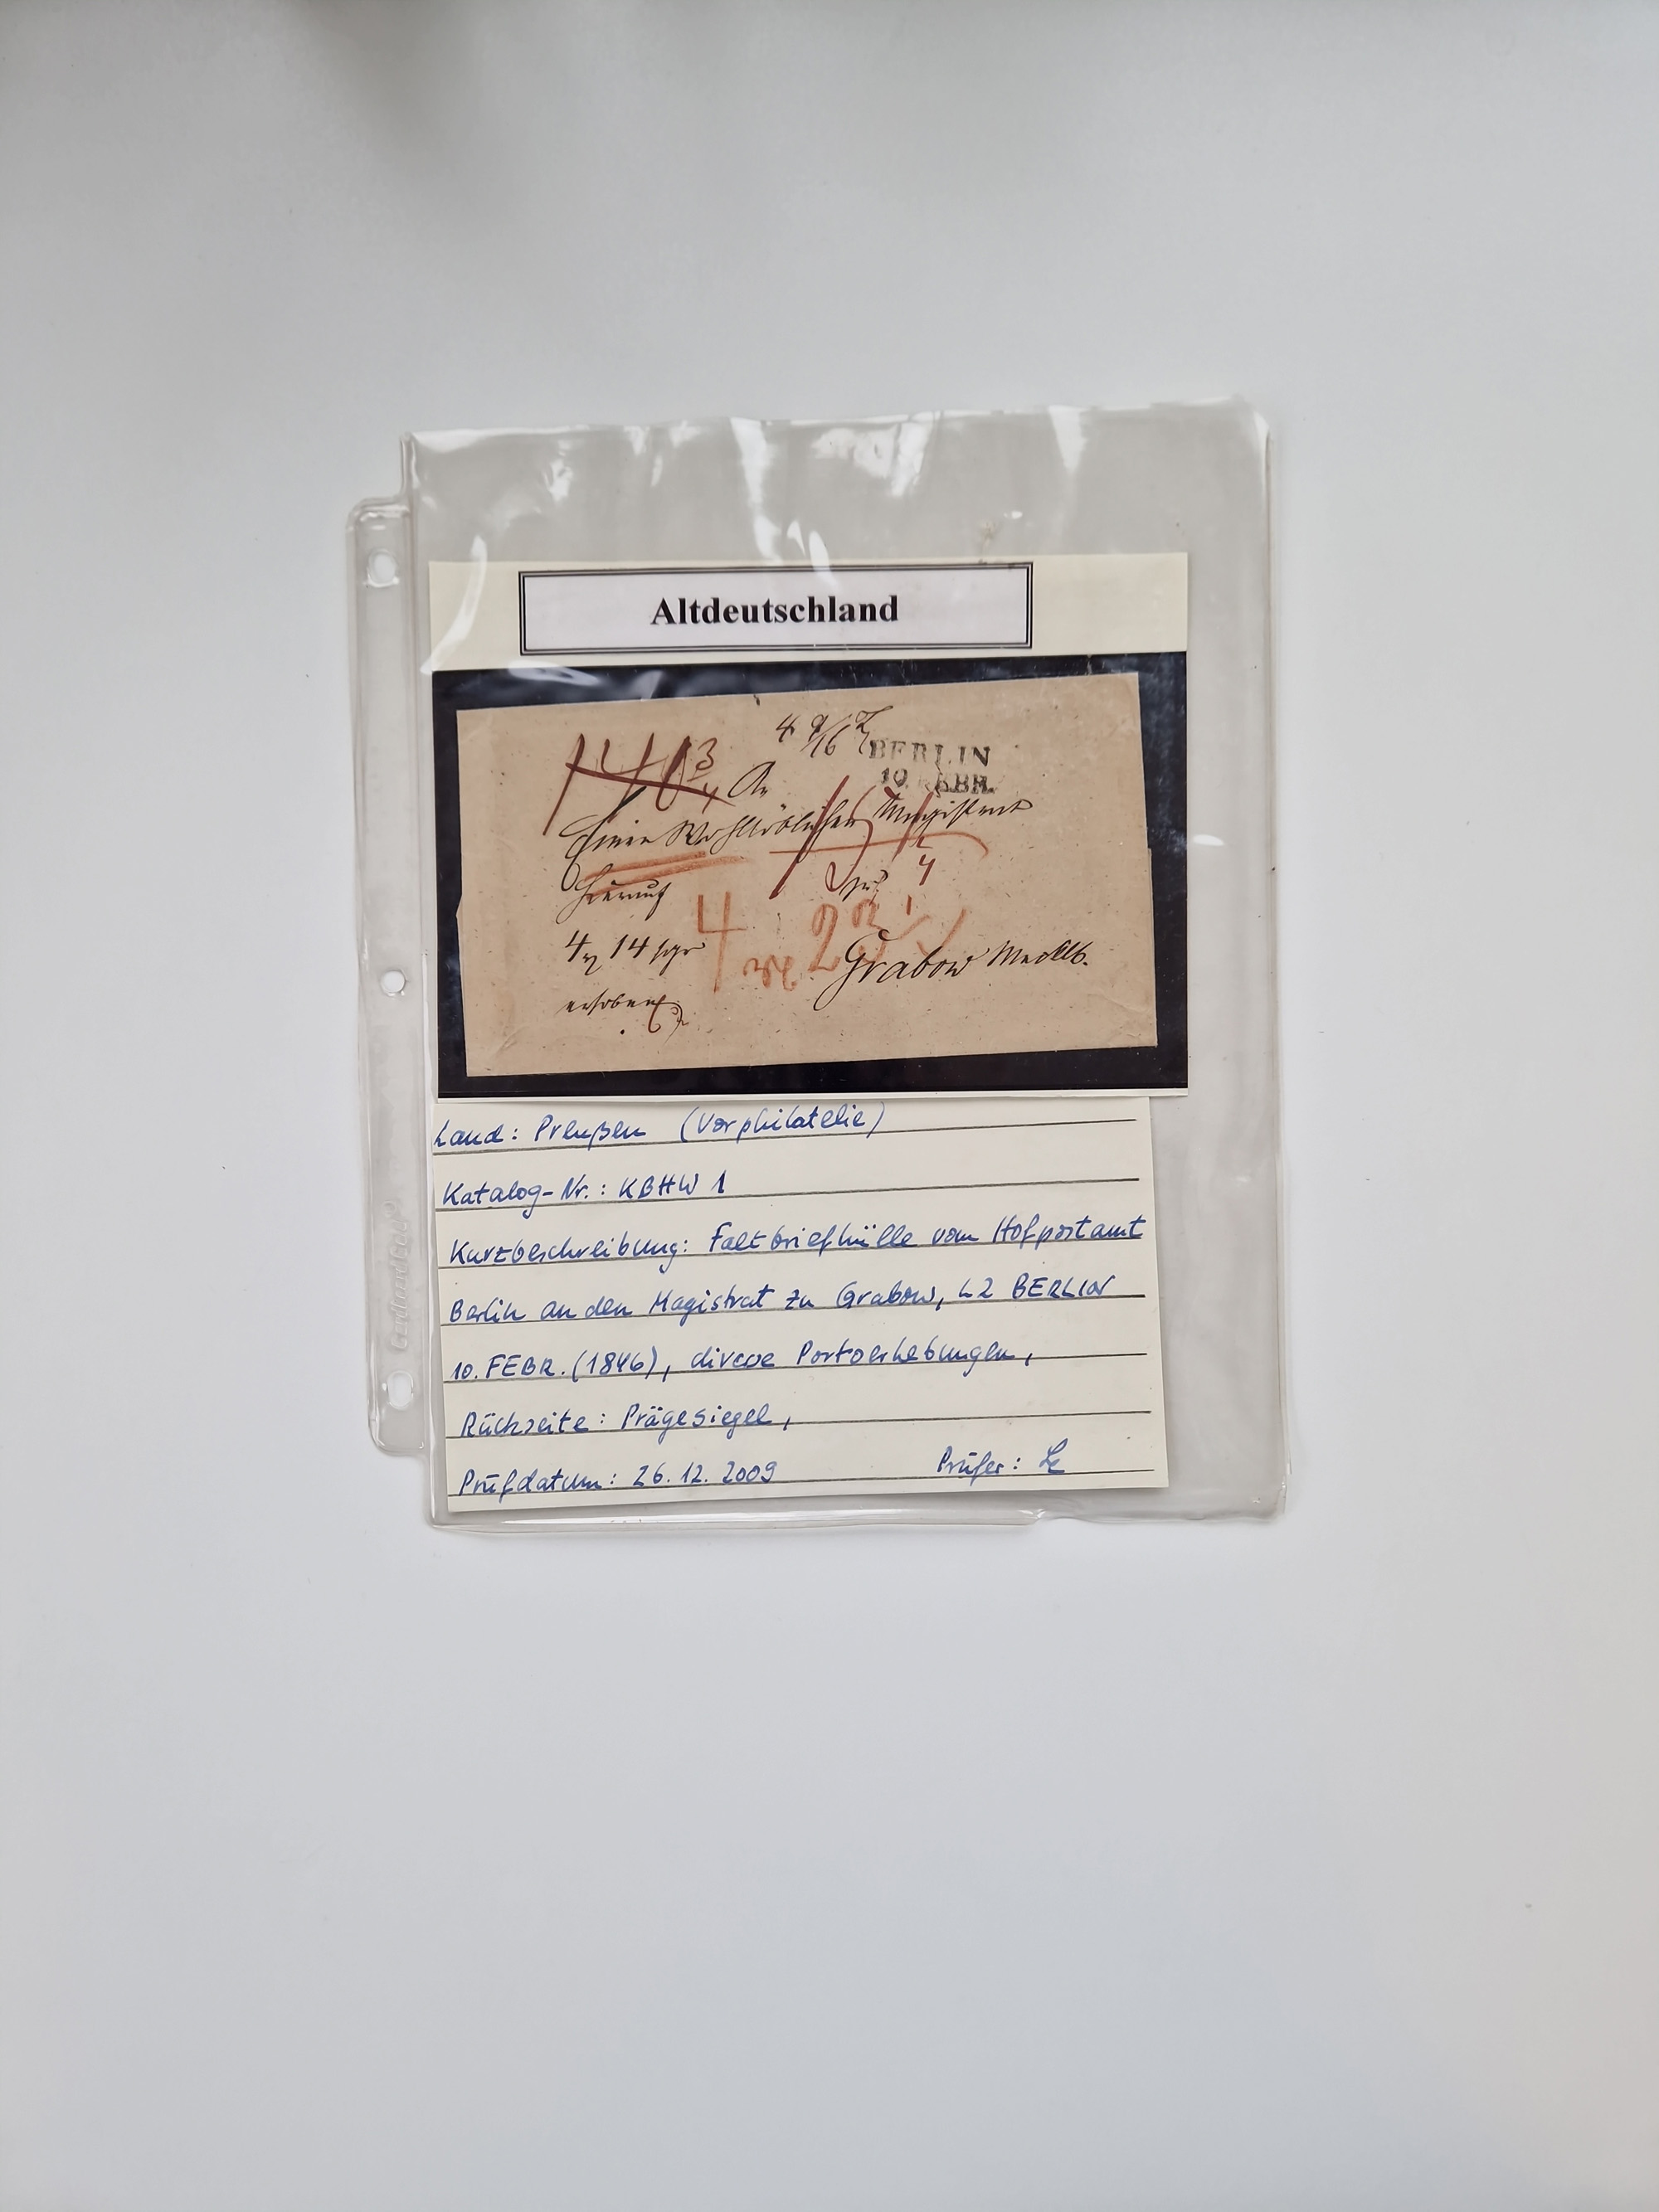 Altdeutschland
4 9/16
BERLIN
10 FEBR.
An
Einen Wohllöblichen Magistrat
Hierauf
zu
4
4 14 sgr
Grabow Mecklb.
erhoben
Land: Preußen (Vorphilatelie)
Katalog-Nr.: KBHW 1
Kurzbeschreibung: Faltbriefhülle vom Hofpostamt
Berlin an den Magistrat zu Grabow, L2 BERLIN
10. FEBR. (1846), diverse Portoerhebungen,
Rückseite: Prägesiegel,
Prüfdatum: 26.12.2009 Prüfer: